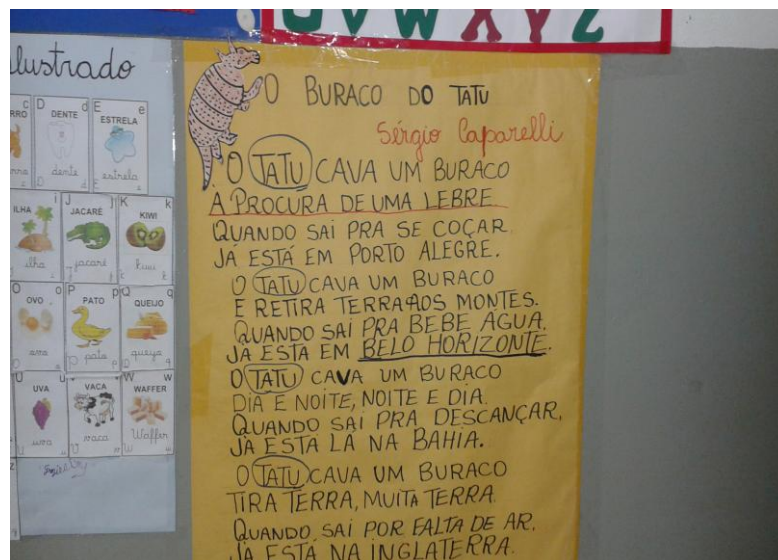 U V W X Y Z
ilustrado
C
D DENTE d
dente
E ESTRELA e
estrela
ILHA i
ilha
J JACARÉ j
jacaré
K KIWI k
kiwi
O OVO o
ovo
P PATO p
pato
Q QUEIJO q
queijo
U UVA u
uva
VACA v
vaca
W WAFFER w
Waffer
O BURACO DO TATU
Sérgio Caparelli
O TATU CAVA UM BURACO
A PROCURA DE UMA LEBRE
QUANDO SAI PRA SE COÇAR
JÁ ESTÁ EM PORTO ALEGRE.
O TATU CAVA UM BURACO
E RETIRA TERRA AOS MONTES.
QUANDO SAI PRA BEBE ÁGUA,
JÁ ESTÁ EM BELO HORIZONTE.
O TATU CAVA UM BURACO
DIA E NOITE, NOITE E DIA.
QUANDO SAI PRA DESCANÇAR,
JÁ ESTA LÁ NA BAHIA.
O TATU CAVA UM BURACO
TIRA TERRA, MUITA TERRA.
QUANDO SAI POR FALTA DE AR,
JÁ ESTÁ NA INGLATERRA.